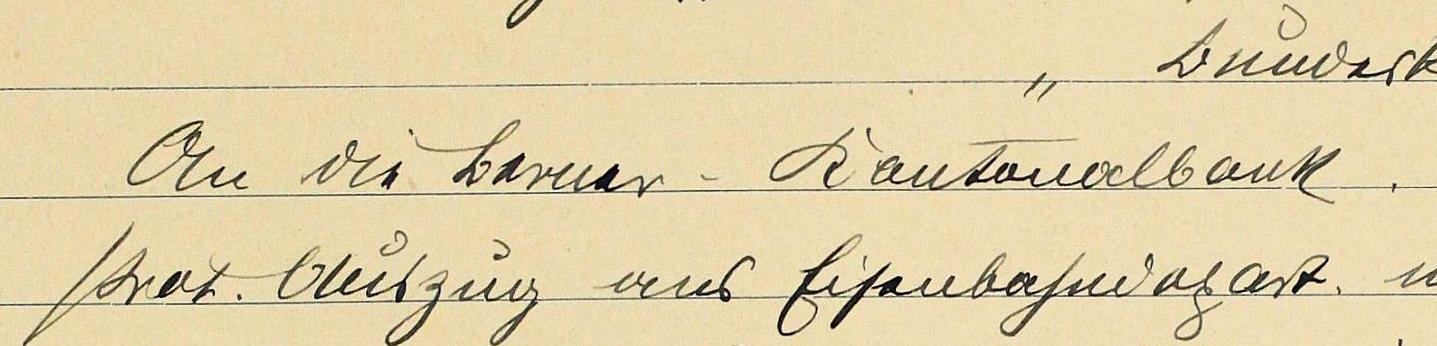 „ Bundesk
An die Berner - Kantonalbank.
Prot. Auszug ans Eisenbahndepart.